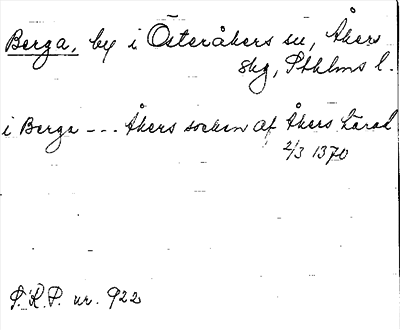 Berga, by i Österåkers sn, Åkers
skg, Sthlms l.
i Berga --- Åkers socken af Åkers härad
2/3 1370
S.R.P. nr. 922